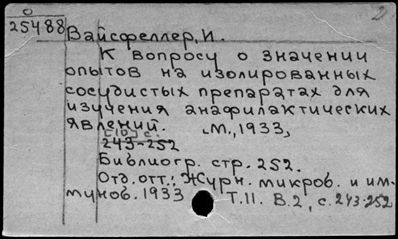 О
25488
2
Вайсфеллер, И.
К вопросу о значении
опытов на изолированных
сосудистых препаратах для
изучения анафилактических
явлений. М., 1933,
[10] с.
243-252
Библиогр. стр. 252.
Отд. отт.: Журн. микроб. и им-
мунов. 1933 Т.11. В.2, с. 243-252